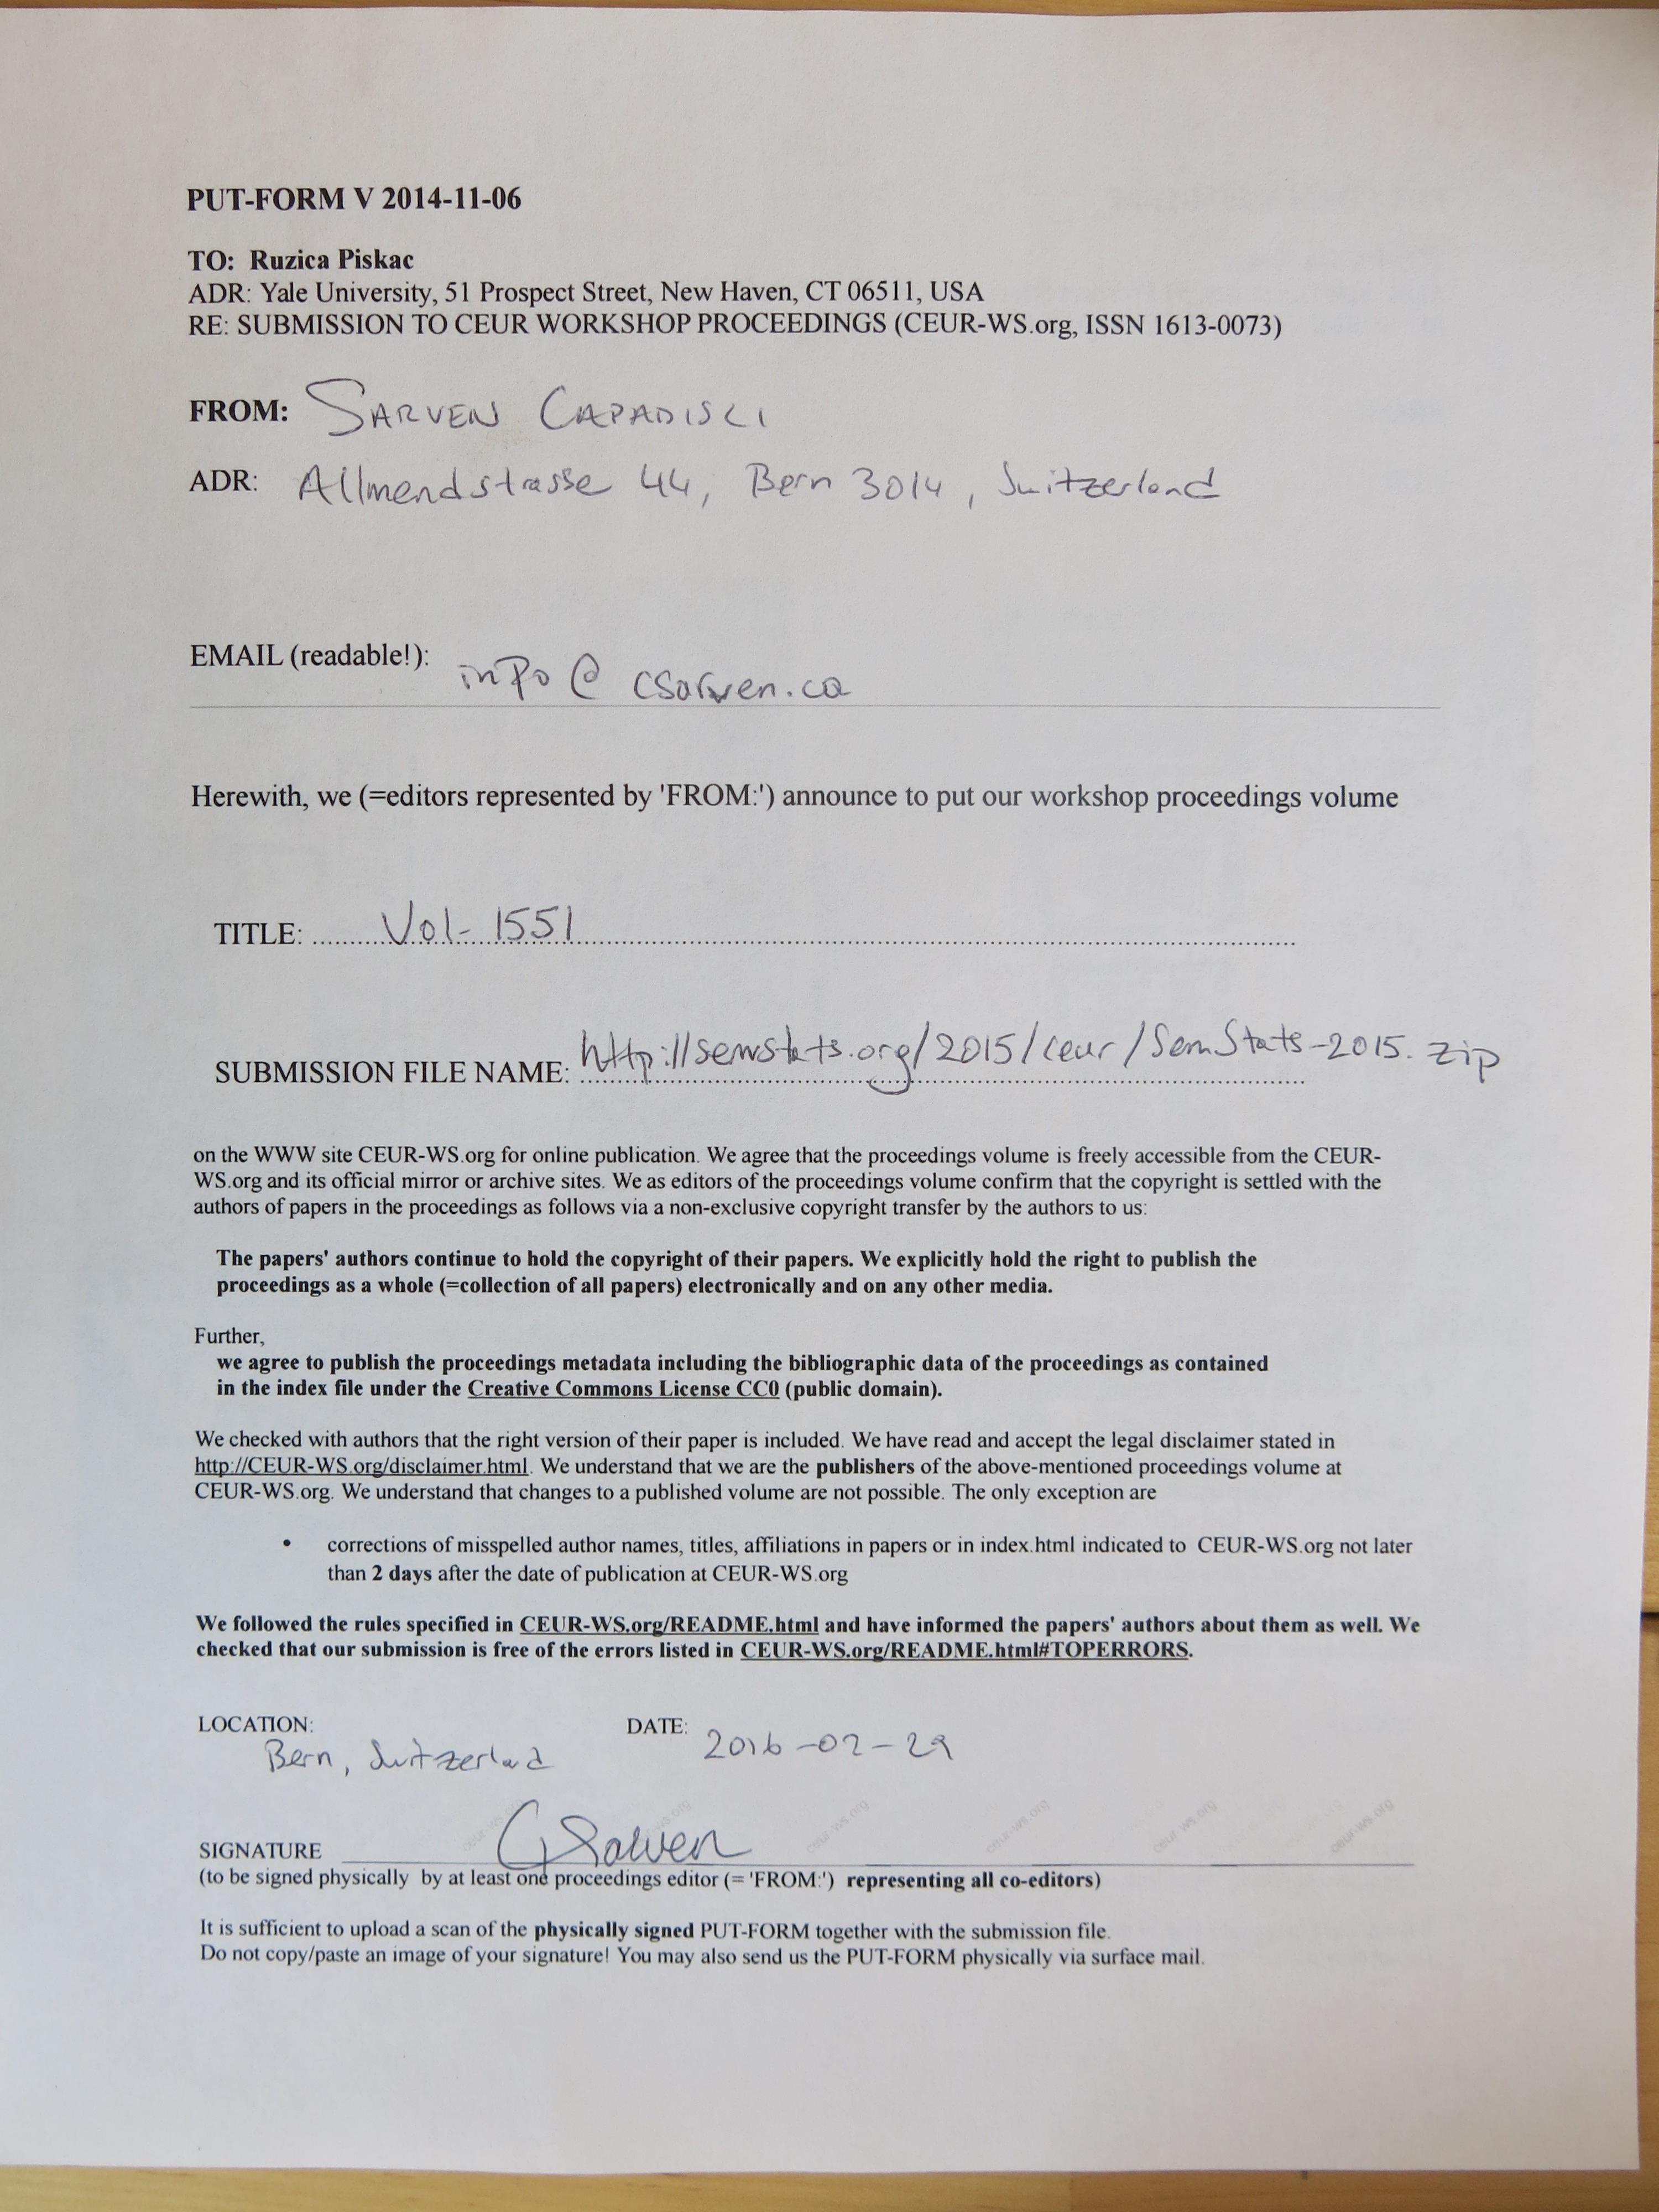 PUT-FORM V 2014-11-06
TO: Ruzica Piskac
ADR: Yale University, 51 Prospect Street, New Haven, CT 06511, USA
RE: SUBMISSION TO CEUR WORKSHOP PROCEEDINGS (CEUR-WS.org, ISSN 1613-0073)
FROM: SARVEN CAPADISLI
ADR: Allmendstrasse 44, Bern 3014, Switzerland
EMAIL (readable!): info@csarven.ca
Herewith, we (=editors represented by 'FROM:') announce to put our workshop proceedings volume
TITLE: Vol-1551
SUBMISSION FILE NAME: http://semstats.org/2015/ceur/SemStats-2015.zip
on the WWW site CEUR-WS.org for online publication. We agree that the proceedings volume is freely accessible from the CEUR-
WS.org and its official mirror or archive sites. We as editors of the proceedings volume confirm that the copyright is settled with the
authors of papers in the proceedings as follows via a non-exclusive copyright transfer by the authors to us:
The papers' authors continue to hold the copyright of their papers. We explicitly hold the right to publish the
proceedings as a whole (=collection of all papers) electronically and on any other media.
Further,
we agree to publish the proceedings metadata including the bibliographic data of the proceedings as contained
in the index file under the Creative Commons License CC0 (public domain).
We checked with authors that the right version of their paper is included. We have read and accept the legal disclaimer stated in
http://CEUR-WS.org/disclaimer.html. We understand that we are the publishers of the above-mentioned proceedings volume at
CEUR-WS.org. We understand that changes to a published volume are not possible. The only exception are
• corrections of misspelled author names, titles, affiliations in papers or in index.html indicated to CEUR-WS.org not later
than 2 days after the date of publication at CEUR-WS.org
We followed the rules specified in CEUR-WS.org/README.html and have informed the papers' authors about them as well. We
checked that our submission is free of the errors listed in CEUR-WS.org/README.html#TOPERRORS.
LOCATION: DATE:
Bern, Switzerland 2016-02-29
ceur-ws.org ceur-ws.org ceur-ws.org ceur-ws.org ceur-ws.org ceur-ws.org
SIGNATURE CSarven
(to be signed physically by at least one proceedings editor (= 'FROM:') representing all co-editors)
It is sufficient to upload a scan of the physically signed PUT-FORM together with the submission file.
Do not copy/paste an image of your signature! You may also send us the PUT-FORM physically via surface mail.